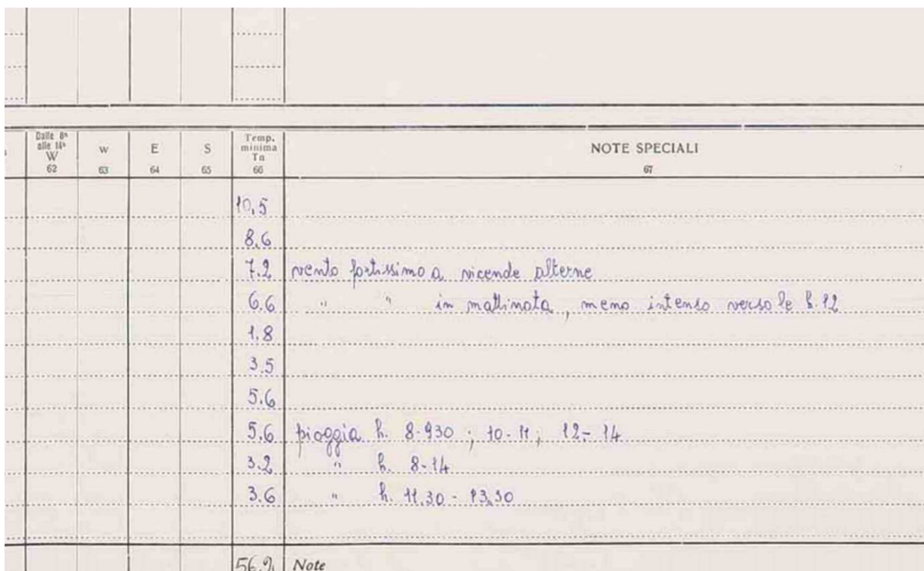 Dalle 8h alle 14h W 62
W 63
E 64
S 65
Temp. minima Tn 66
NOTE SPECIALI 67
10,5
8,6
7.2 vento fortissimo a vicende alterne
6,6 " " in mattinata, meno intenso verso le h. 12
1.8
3.5
5.6
5.6 pioggia h. 8-930 ; 10-11 ; 12-14
3.2 " h. 8-14
3.6 " h. 11.30 - 13,30
Note